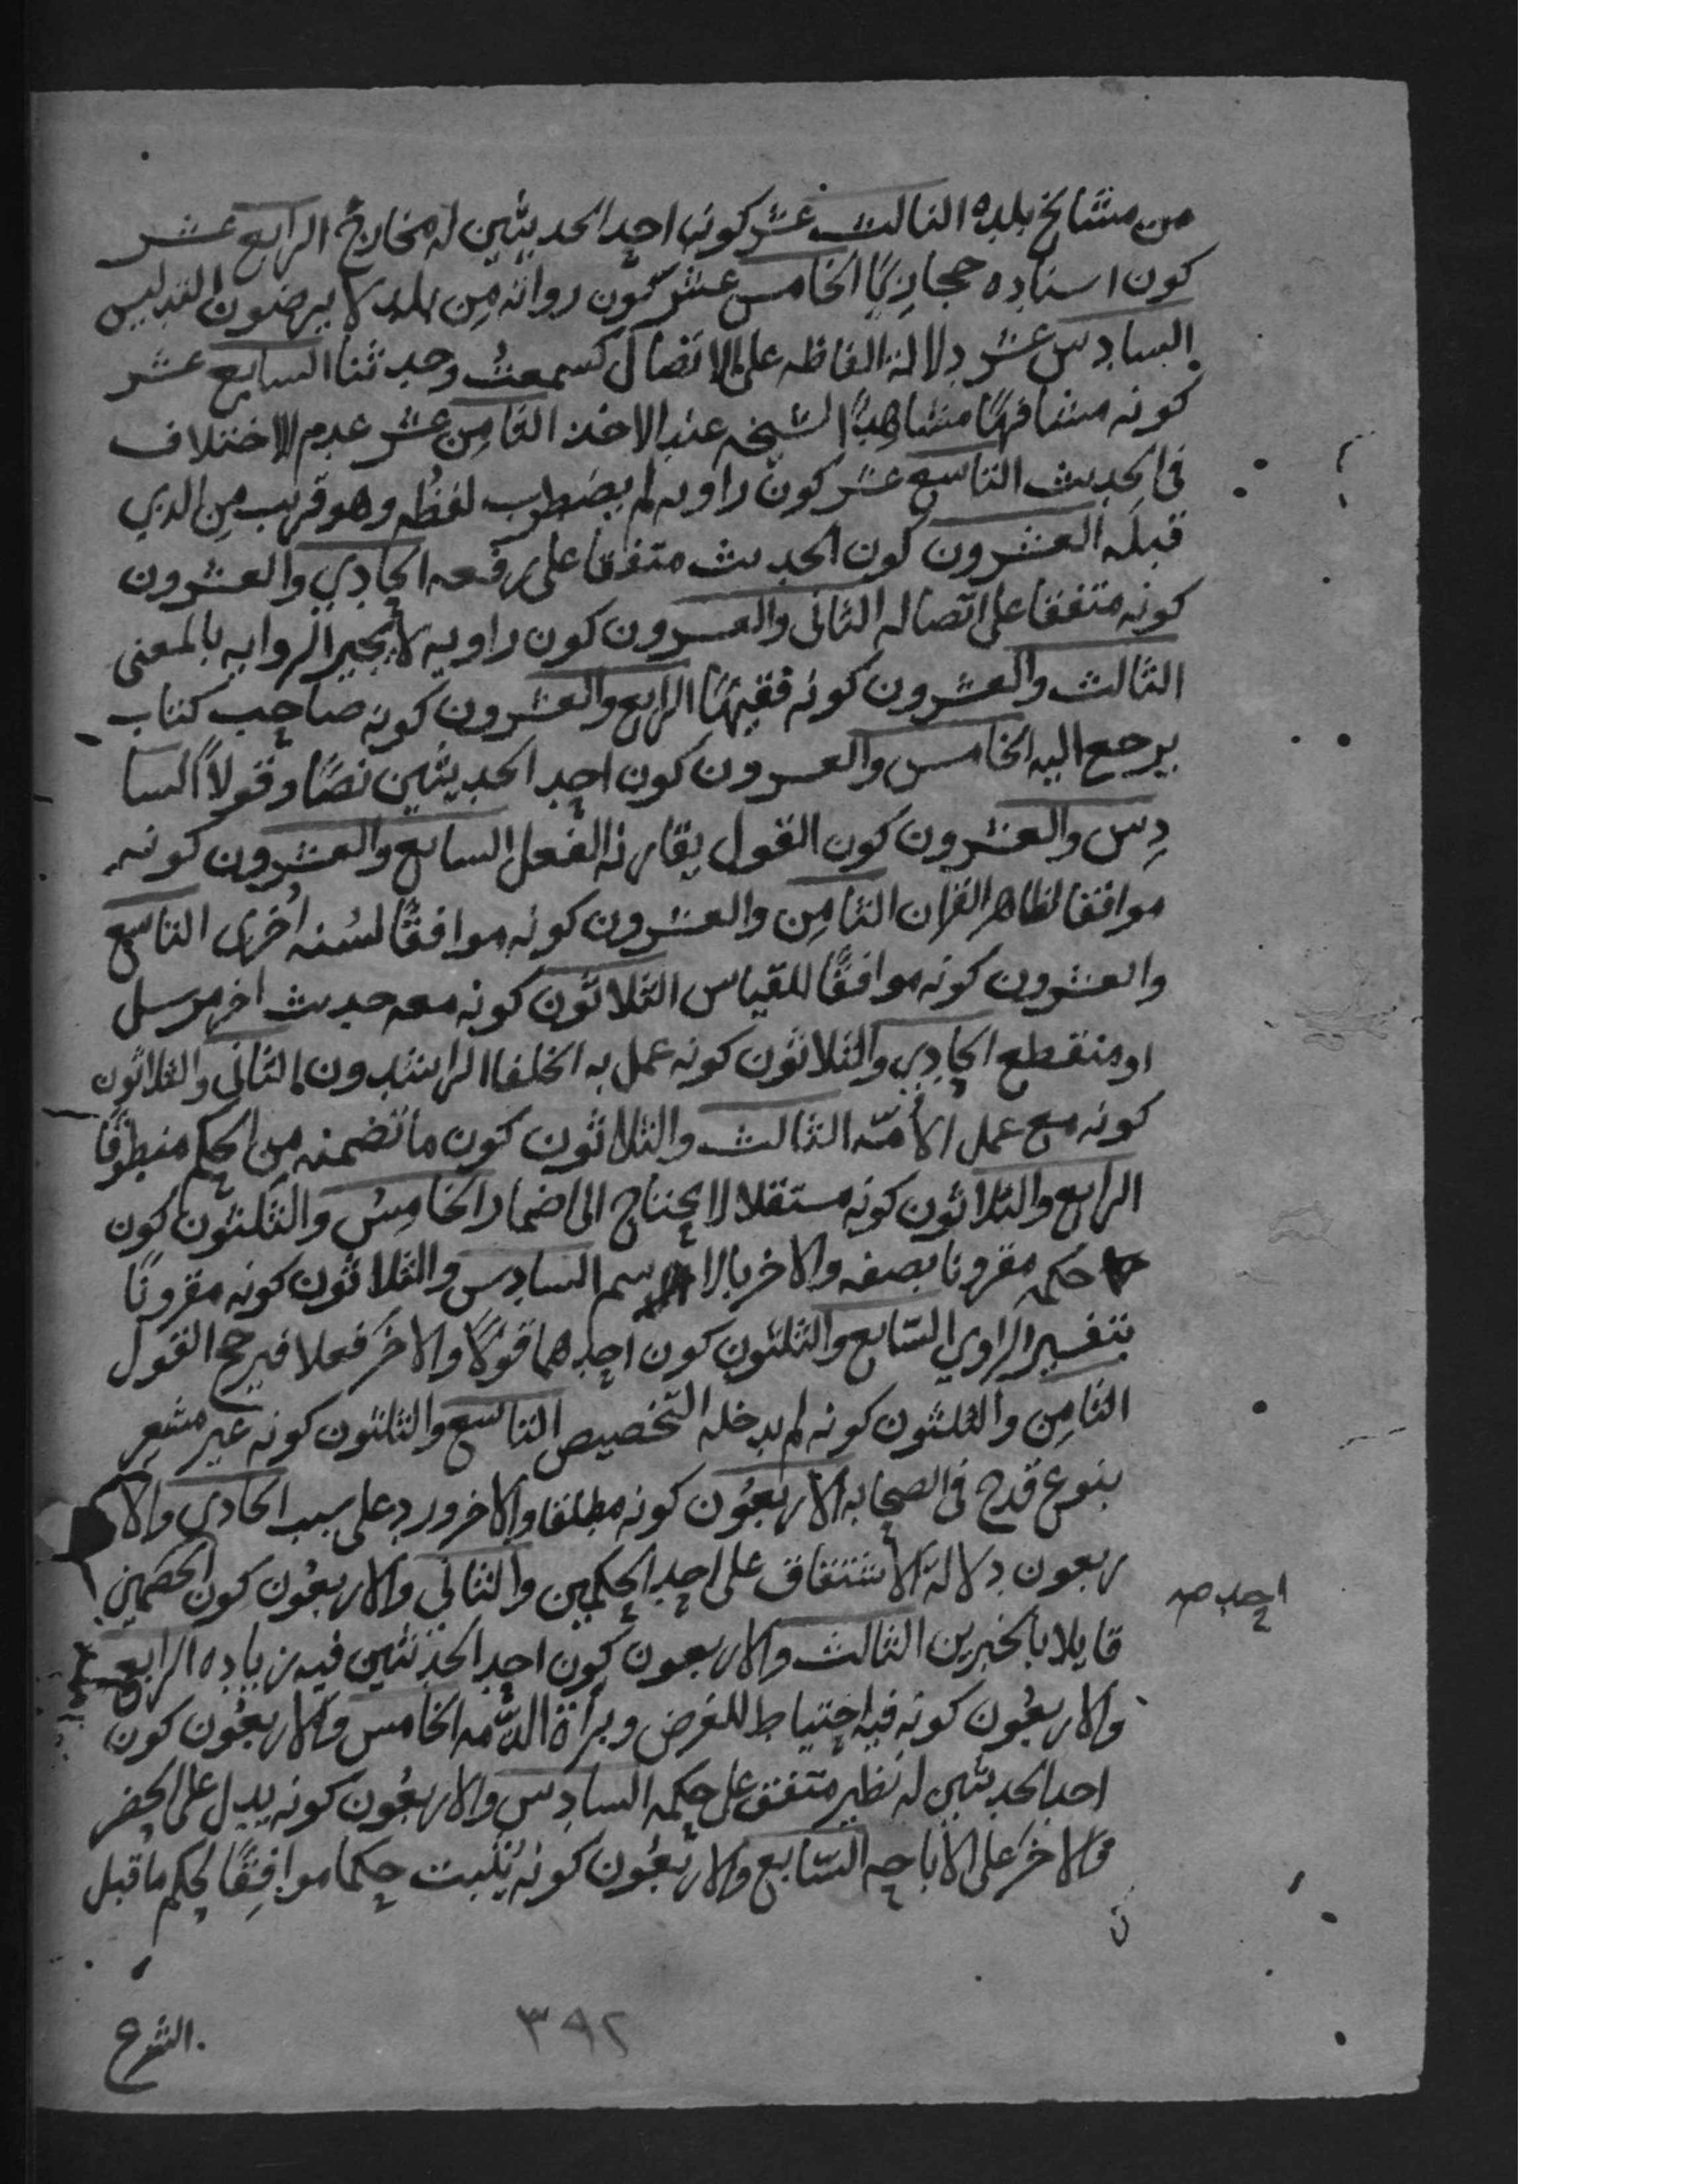 من مشايخ بلده الثالث عشر كونه احد الحديثين له مخارج الرابع عشر
كون اسناده حجازيا الخامس عشر كون رواته من بلد لا يرضون التدليس
السادس عشر دلالة الفاظه على الاتصال كسمعت وحدثنا السابع عشر
كونه مشافها مشاهدا لشيخه عند الاخذ الثامن عشر عدم الاختلاف
في الحديث التاسع عشر كون راويه لم يضطرب لفظه وهو قريب من الذي
قبله العشرون كون الحديث متفقا على رفعه الحادي والعشرون
كونه متفقا على اتصاله الثاني والعشرون كون راويه لا يجيز الروايه بالمعنى
الثالث والعشرون كونه فقيها الرابع والعشرون كونه صاحب كتاب
يرجع اليه الخامس والعشرون كون احد الحديثين نصا وقولا السا
دس والعشرون كون القول يقارنه الفعل السابع والعشرون كونه
موافقا لظاهر القران الثامن والعشرون كونه موافقا لسنه اخرى التاسع
والعشرون كونه موافقا للقياس الثلاثون كونه معه حديث اخر مرسل
او منقطع الحادي والثلاثون كونه عمل به الخلفا الراشدون الثاني والثلاثون
كونه مع عمل الأمّه الثالث والثلاثون كون ما تضمنه من الحكم منطوقا
الرابع والثلاثون كونه مستقلا لا يحتاج الى اضمار الخامس والثلثون كون
حكمه مقرونا بصفه والاخر بالاسم السادس والثلاثون كونه مقرونا
بتفسير الراوي السابع والثلثون كون احدهما قولا والاخر فعلا فيرجح القول
الثامن والثلثون كونه لم يدخله التخصيص التاسع والثلثون كونه غير مشعر
بنوع قدح في الصحابه الاربعون كونه مطلقا والاخر ورد على سبب الحادي والا
ربعون دلالة الاشتقاق على احد الحكمين والثاني والاربعون كون الخصمين
احد صه
قايلا بالخبرين الثالث والاربعون كون احد الحديثين فيه زياده الرابع
والاربعون كونه فيه احتياط للفرض وبرأة الذّمه الخامس والاربعون كون
احد الحديثين له نظير متفق على حكمه السادس والاربعون كونه يدل على الحضر
والاخر على الاباحه السابع والاربعون كونه يثبت حكما موافقا لحكم ما قبل
الشرع
٣٩٢